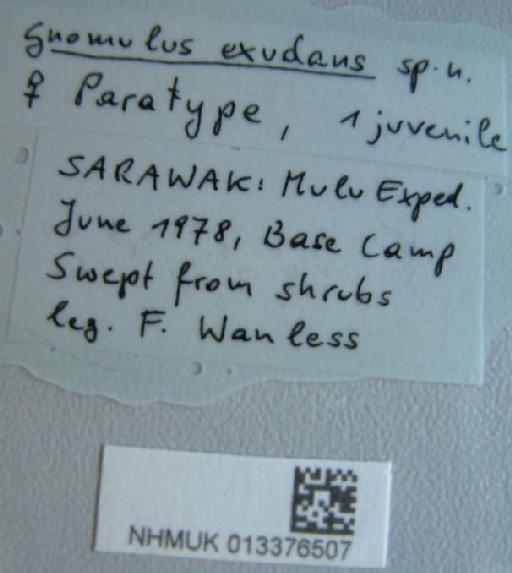 Gnomulus exudans sp.n.
♀ Paratype, 1 juvenile
SARAWAK: Mulu Exped.
June 1978, Base Camp
Swept from shrubs
leg. F. Wanless
NHMUK 013376507